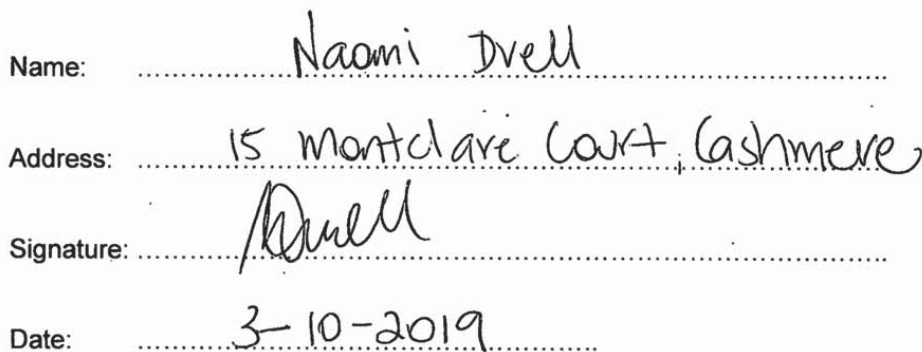 Name: Naomi Drell
Address: 15 Montclare Court, Cashmere
Signature:
Date: 3-10-2019